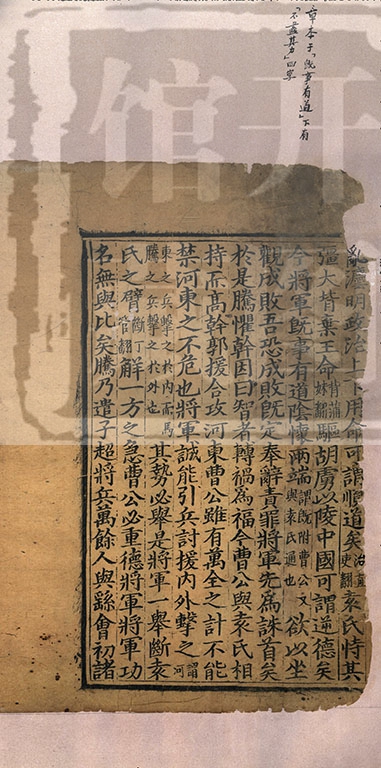 章本于「既事有道」下有
「不盡其力」四字
亂灋明政治上下用命可謂順道矣治直吏翻袁氏恃其
彊大背棄王命背蒲妹翻驅胡虜以陵中國可謂逆德矣
今將軍旣事有道陰懷兩端謂旣附曹公又與袁氏通也欲以坐
觀成敗吾恐成敗旣定奉辭責罪將軍先爲誅首矣
於是騰懼幹因曰智者轉禍爲福今曹公與袁氏相
持而高幹郭援合攻河東曹公雖有萬全之計不能
禁河東之不危也將軍誠能引兵討援內外擊之謂河
東之兵擊之於內而馬騰之兵擊之於外也其勢必舉是將軍一舉斷袁
氏之臂斷丁管翻解一方之急曹公必重德將軍將軍功
名無與比矣騰乃遣子超將兵萬餘人與繇會初諸
开
馆